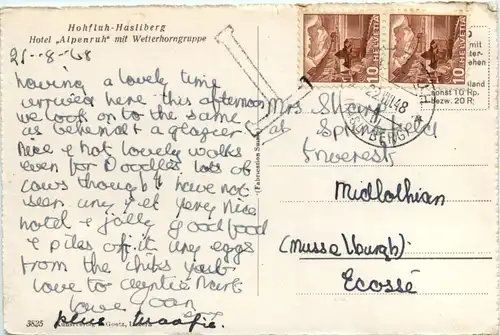 Hohfluh-Hasliberg
Hotel „Alpenruh" mit Wetterhorngruppe
21-8-48
having a lovely time
arrived here this afternoon
we look on to the same
as behendt & a glacier
Nice & hot lovely walks
even for Doodles, lots of
cows though I have not
seen any yet very nice
hotel & jolly good food
& piles off it any eggs
from the chiks yet
love to
love Joan
plus
Mrs
at Springfield
Inveresk
Midlothian
(Musselburgh)
Ecosse
10 HELVETIA
10 HELVETIA
22.VIII.48
sonst 10 Rp.
bezw. 20 R
5825